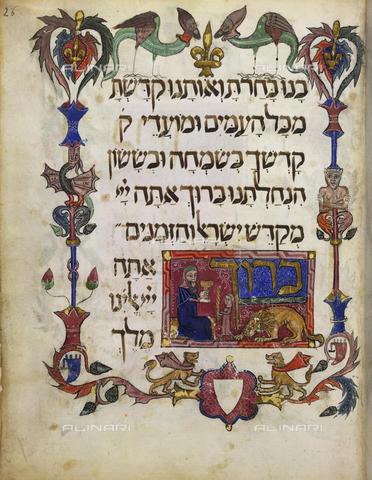 26
בנו בחרת ואותנו קדשת
מכל העמים ומועדי ק
קדשך בשמחה ובששון
הנחלתנו ברוך אתה ייי
מקדש ישראל והזמנים
ברוך
אתה
ייי אלהינו
מלך
ALINARI
ALINARI
ALINARI
ALINARI
ALINARI